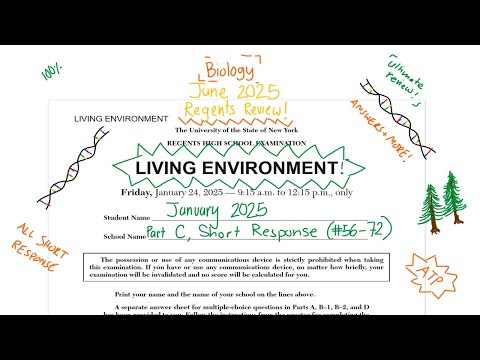 100%
Biology
June 2025
Regents Review!
"ultimate review!"
LIVING ENVIRONMENT
ANSWERS + MORE!
The University of the State of New York
REGENTS HIGH SCHOOL EXAMINATION
LIVING ENVIRONMENT!
Friday, January 24, 2025 — 9:15 a.m. to 12:15 p.m., only
Student Name January 2025
School Name Part C, Short Response (#56-72)
ALL SHORT RESPONSE
ATP
The possession or use of any communications device is strictly prohibited when taking
this examination. If you have or use any communications device, no matter how briefly, your
examination will be invalidated and no score will be calculated for you.
Print your name and the name of your school on the lines above.
A separate answer sheet for multiple-choice questions in Parts A, B–1, B–2, and D
has been provided to you. Follow the instructions from the proctor for completing the